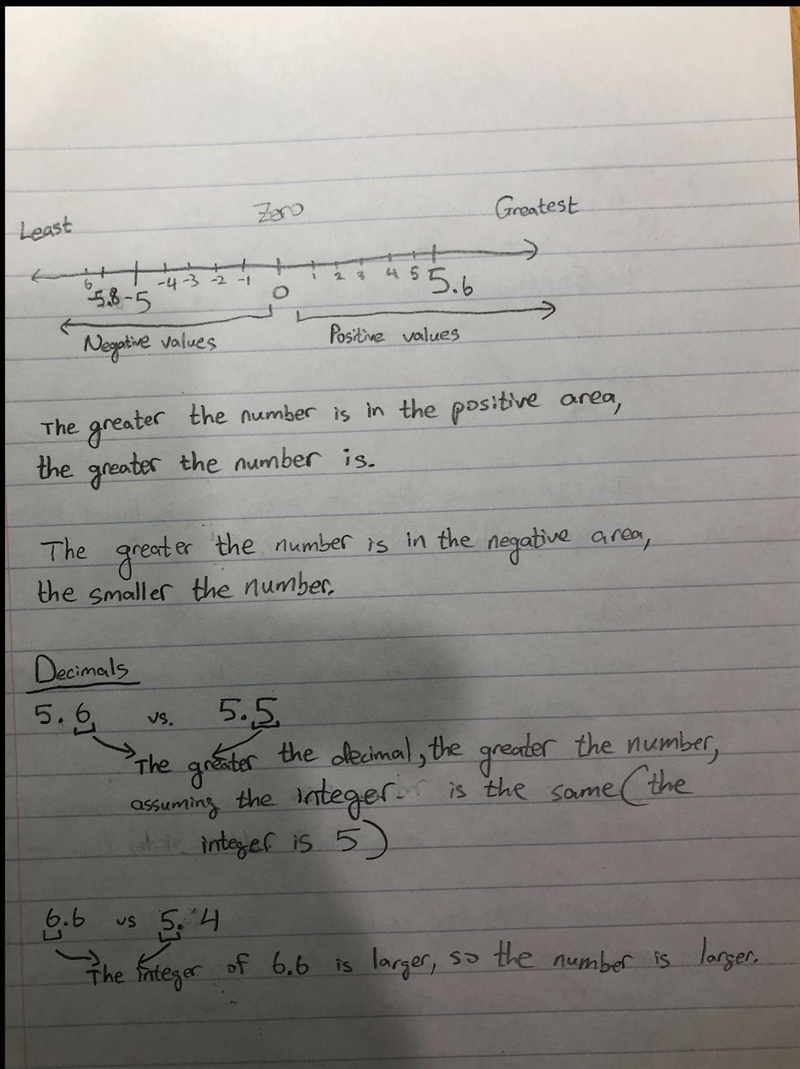 Least Zero Greatest
6 -5.8 -5 -4 -3 -2 -1 0 1 2 3 4 5 5.6
Negative values Positive values
The greater the number is in the positive area,
the greater the number is.
The greater the number is in the negative area,
the smaller the number.
Decimals
5.6 vs. 5.5
The greater the decimal, the greater the number,
assuming the integer is the same (the
integer is 5)
6.6 vs 5.4
The integer of 6.6 is larger, so the number is larger.